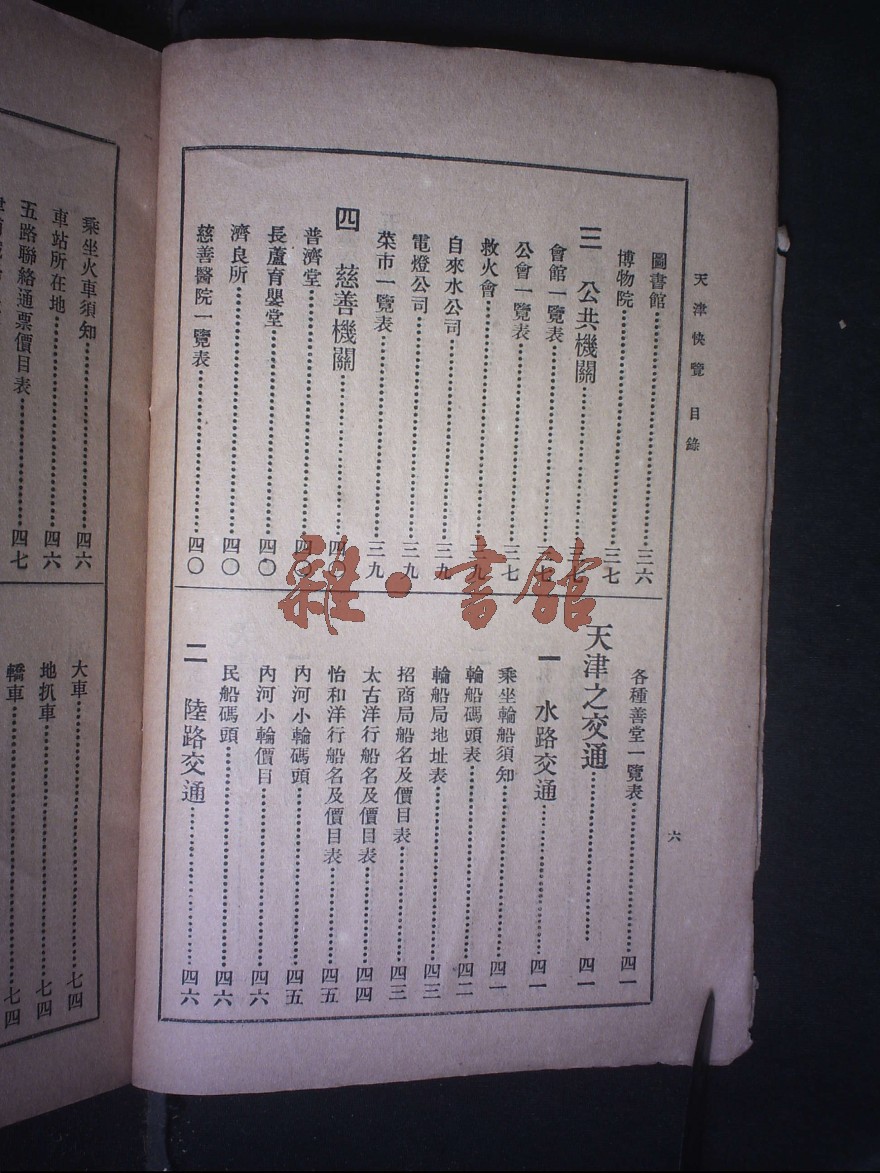 天津快覽 目錄
六
圖書館 三六
博物院 三七
三 公共機關 三七
會館一覽表 三七
公會一覽表 三七
救火會 三九
自來水公司 三九
電燈公司 三九
菜市一覽表 三九
四 慈善機關 四〇
普濟堂 四〇
長蘆育嬰堂 四〇
濟良所 四〇
慈善醫院一覽表 四〇
各種善堂一覽表 四一
天津之交通 四一
一 水路交通 四一
乘坐輪船須知 四一
輪船碼頭表 四二
輪船局地址表 四三
招商局船名及價目表 四三
太古洋行船名及價目表 四四
怡和洋行船名及價目表 四五
內河小輪碼頭 四五
內河小輪價目 四六
民船碼頭 四六
二 陸路交通 四六
乘坐火車須知 四六
車站所在地 四六
五路聯絡通票價目表 四七
大車 七四
地扒車 七四
轎車 七四
雜·書館